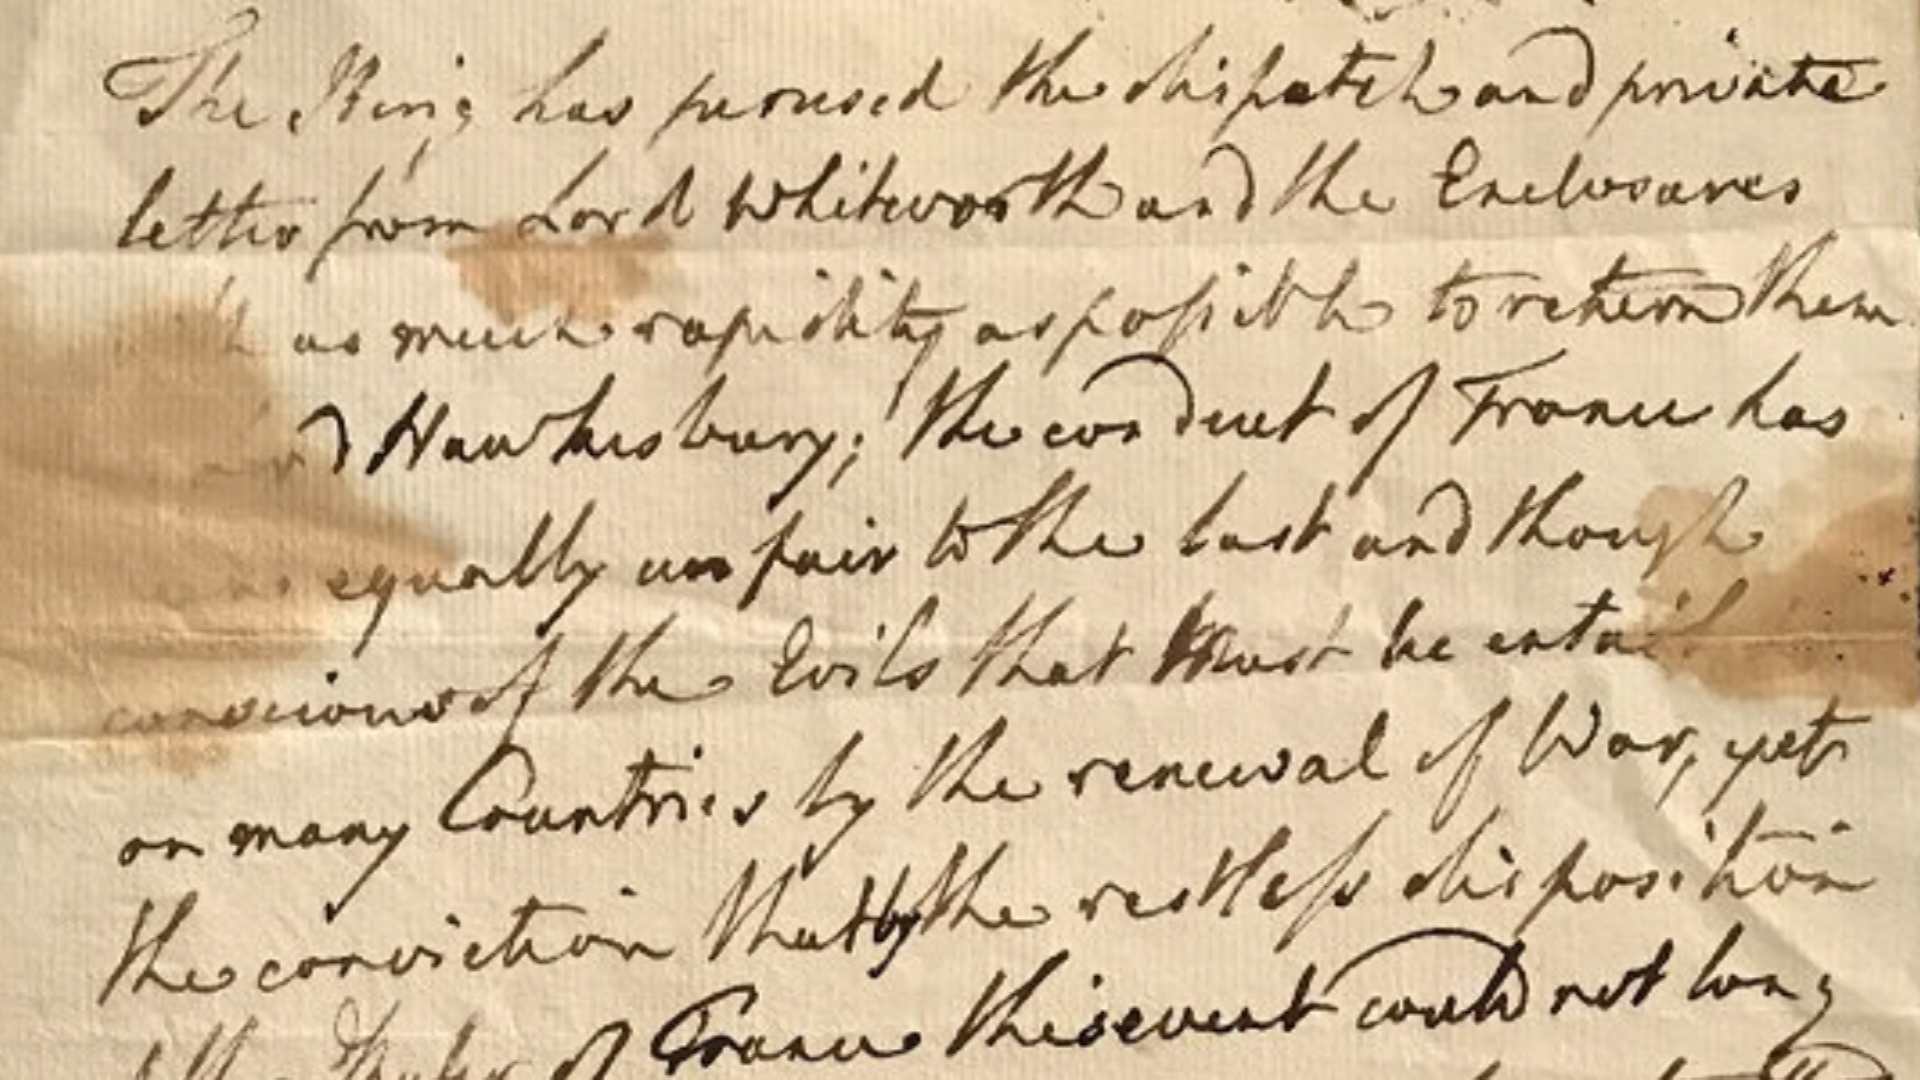 The King has perused the dispatch and private
letter from Lord Whitworth and the Enclosures
as much rapidity as possible to return them
Hawkesbury; the conduct of France has
equally unfair to the last and though
conscious of the Evils that must be entail
on many Countries by the renewal of War, yet
the conviction that by the restless disposition
of France this event could not long